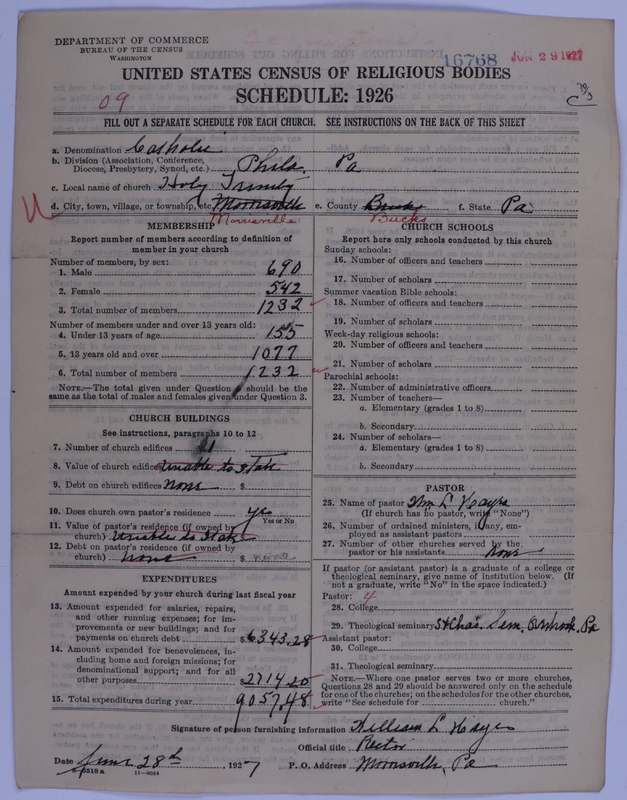 DEPARTMENT OF COMMERCE
BUREAU OF THE CENSUS
WASHINGTON
16768
JUN 29 1927
UNITED STATES CENSUS OF RELIGIOUS BODIES
SCHEDULE: 1926
09
FILL OUT A SEPARATE SCHEDULE FOR EACH CHURCH. SEE INSTRUCTIONS ON THE BACK OF THIS SHEET
a. Denomination Catholic
b. Division (Association, Conference, Diocese, Presbytery, Synod, etc.) Phila. Pa
c. Local name of church Holy Trinity
d. City, town, village, or township, etc. Morrisville e. County Bucks f. State Pa.
Morrisville Bucks
MEMBERSHIP
Report number of members according to definition of
member in your church
Number of members, by sex:
1. Male 690
2. Female 542
3. Total number of members 1232
Number of members under and over 13 years old:
4. Under 13 years of age 155
5. 13 years old and over 1077
6. Total number of members 1232
NOTE.—The total given under Question 6 should be the
same as the total of males and females given under Question 3.
CHURCH BUILDINGS
See instructions, paragraphs 10 to 12
7. Number of church edifices 1
8. Value of church edifices unable to state
9. Debt on church edifices none $
10. Does church own pastor's residence yes
Yes or No
11. Value of pastor's residence (if owned by
church) unable to state
12. Debt on pastor's residence (if owned by
church) none $ none
EXPENDITURES
Amount expended by your church during last fiscal year
13. Amount expended for salaries, repairs,
and other running expenses; for im-
provements or new buildings; and for
payments on church debt $6343.28
14. Amount expended for benevolences, in-
cluding home and foreign missions; for
denominational support; and for all
other purposes $2714.20
15. Total expenditures during year 9057.48
CHURCH SCHOOLS
Report here only schools conducted by this church
Sunday schools:
16. Number of officers and teachers
17. Number of scholars
Summer vacation Bible schools:
18. Number of officers and teachers
19. Number of scholars
Week-day religious schools:
20. Number of officers and teachers
21. Number of scholars
Parochial schools:
22. Number of administrative officers
23. Number of teachers—
a. Elementary (grades 1 to 8)
b. Secondary
24. Number of scholars—
a. Elementary (grades 1 to 8)
b. Secondary
PASTOR
25. Name of pastor Wm L Hayes
(If church has no pastor, write "None")
26. Number of ordained ministers, if any, em-
ployed as assistant pastors
27. Number of other churches served by the
pastor or his assistants None
If pastor (or assistant pastor) is a graduate of a college or
theological seminary, give name of institution below. (If
not a graduate, write "No" in the space indicated.)
Pastor: 4
28. College
29. Theological seminary St Chas. Sem. Overbrook, Pa
Assistant pastor:
30. College
31. Theological seminary
NOTE.—Where one pastor serves two or more churches,
Questions 28 and 29 should be answered only on the schedule
for one of the churches; on the schedules for the other churches,
write "See schedule for church."
Signature of person furnishing information William L Hayes
Official title Rector
Date June 28th 1927 P. O. Address Morrisville, Pa
11—9084